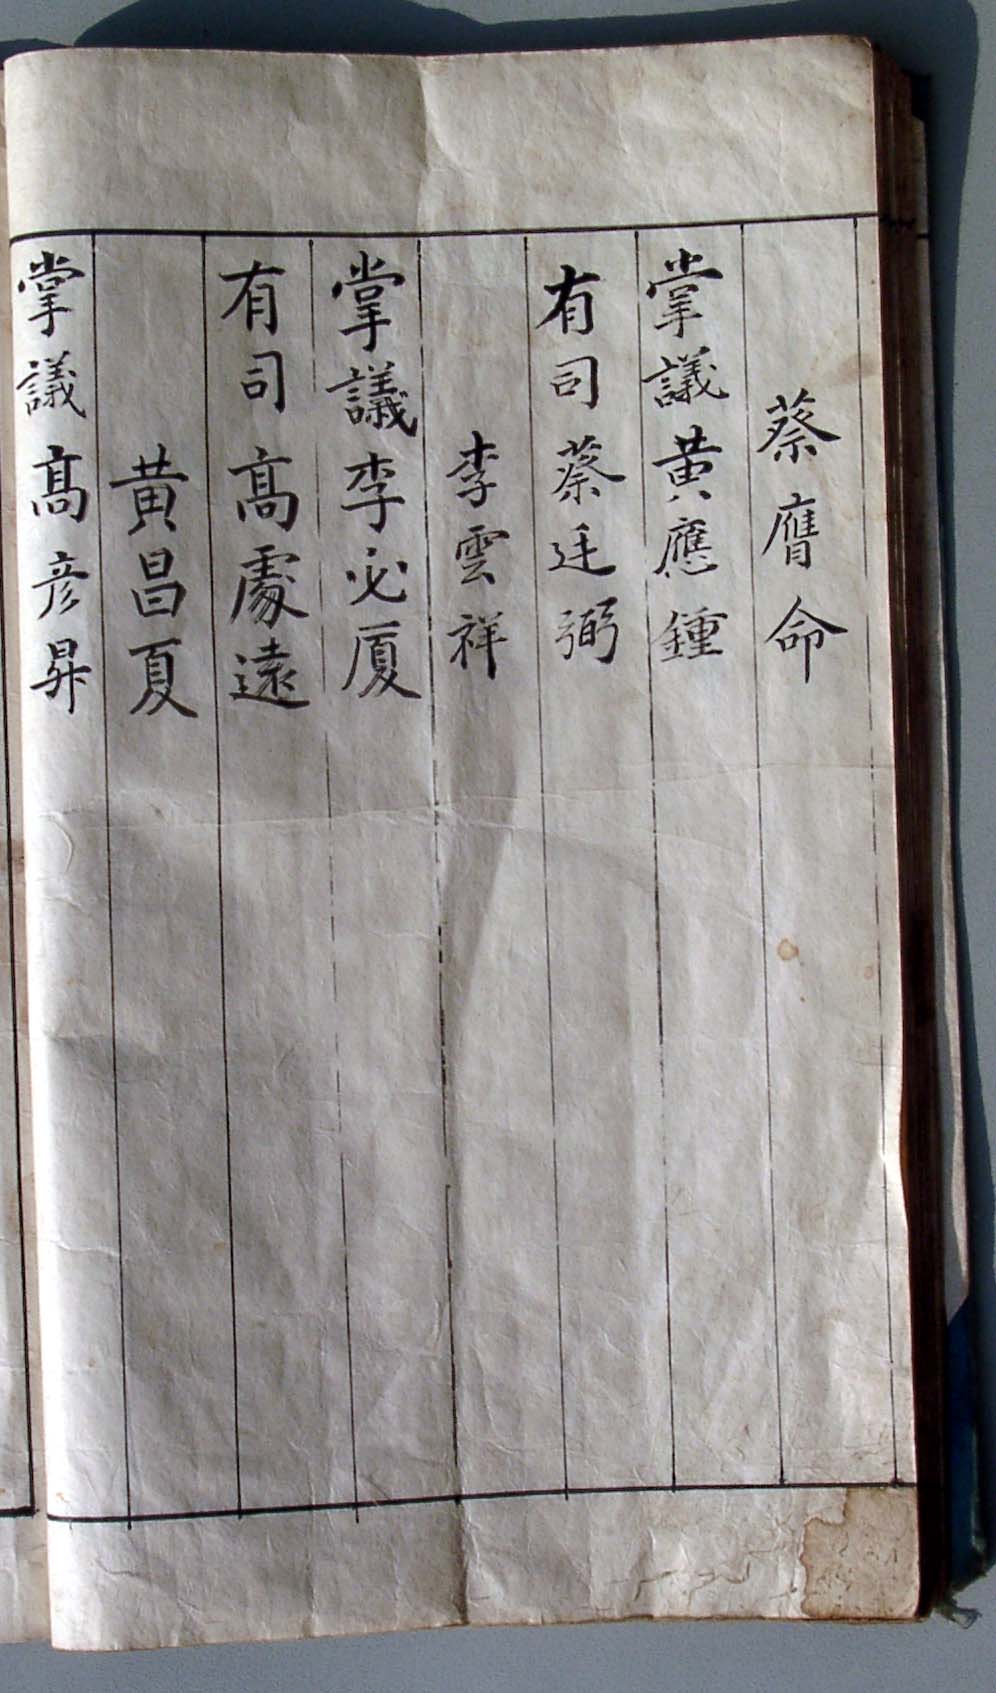 蔡膺命
掌議黃應鍾
有司蔡廷弼
李雲祥
掌議李必廈
有司高處遠
黃昌夏
掌議高彦昇